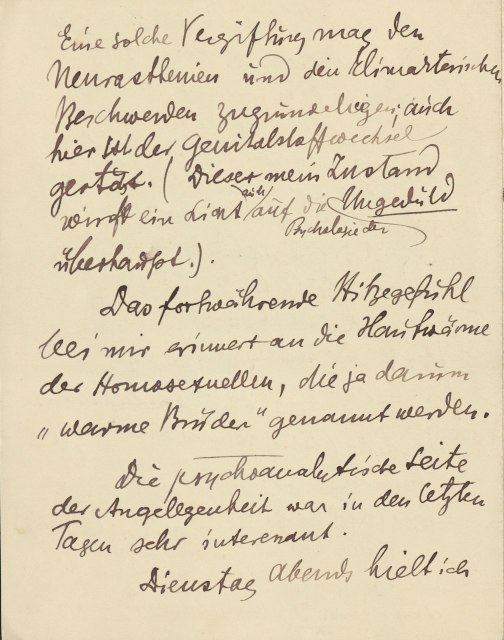 Eine solche Vergiftung mag den
Neurasthenien und den klimakterischen
Beschwerden zugrundeliegen; auch
hier ist der Genitalstoffwechsel
gestört. (Dieser mein Zustand
wirft ein Licht auf die Ungeduld
Psychologie der
überhaupt.).
Das fortwährende Hitzegefühl
bei mir erinnert an die Hautwärme
der Homosexuellen, die ja darum
„warme Brüder" genannt werden.
Die psychoanalytische Seite
der Angelegenheit war in den letzten
Tagen sehr interessant.
Dienstag abends hielt ich